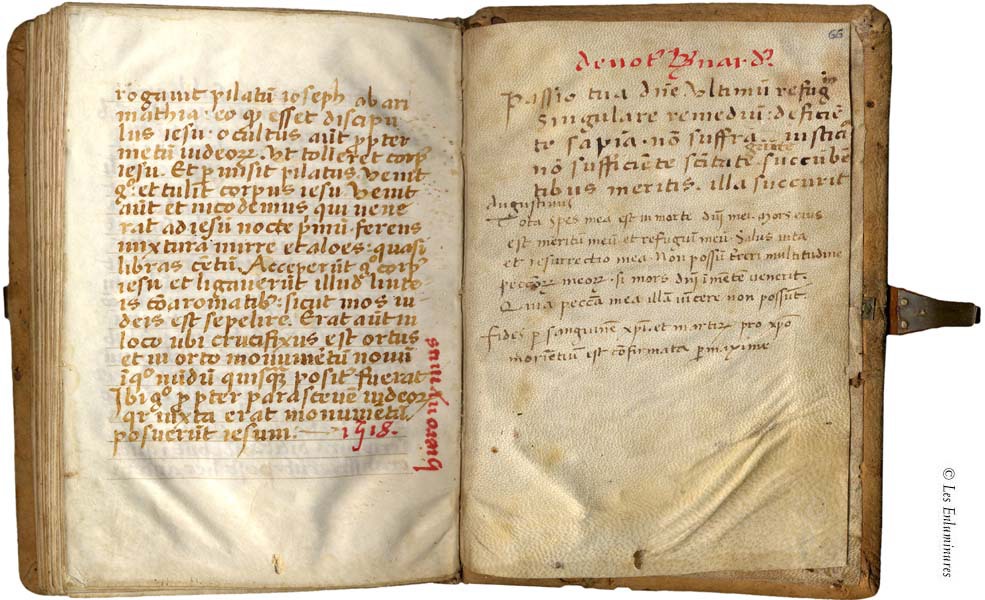 rogavit pilatū ioseph ab ari
mathia· eo qꝫ esset discipu
lus iesu· ocultus aūt ꝓpter
metū iudeoꝝ. Vt tolleret corpꝰ
iesu. Et ꝑmisit pilatus. Venit
gͦ. et tulit corpus iesu. Venit
aūt et nicodemus qui vene
rat ad iesū nocte pͥmū. ferens
mixturā mirre et aloes· quasi
libras cētū. Acceperūt gͦ corpꝰ
iesu et ligaverūt illud linte
is cū aromatibꝰ. sicut mos iu
deis est sepelire. Erat aūt in
loco ubi crucifixus est ortus
et in orto monumētū novū
ī qͦ nūdū quisqꝫ positꝰ fuerat
Ibi gͦ ꝓpter parascevē iudeoꝝ
qꝛ iuxta erat monumētū.
posuerūt iesum. 1518.
66
devotꝰ Bnardꝰ
Passio tua dn̄e Ultimū refugiū
Singulare remediū· deficiē
te sapiā· nō suffragante iusticia
nō sufficiēte sctitate. succubē
tibus meritis. illa succurit
Augustinus
Tota spes mea est in morte dn̄i mei. Mors eius
est meritū meū. et refugiū meū. Salus vita
et resurrectio mea. Non possū terreri multitudine
peccōꝝ meoꝝ. si mors dn̄i in mētē venerit.
Quia peccata mea illā vīcere non possūt.
Fides ꝑ sanguinem xp̄i. et martirū pro xp̄o
morientiū est cōfirmata ꝑmaxime
© Les Enluminures